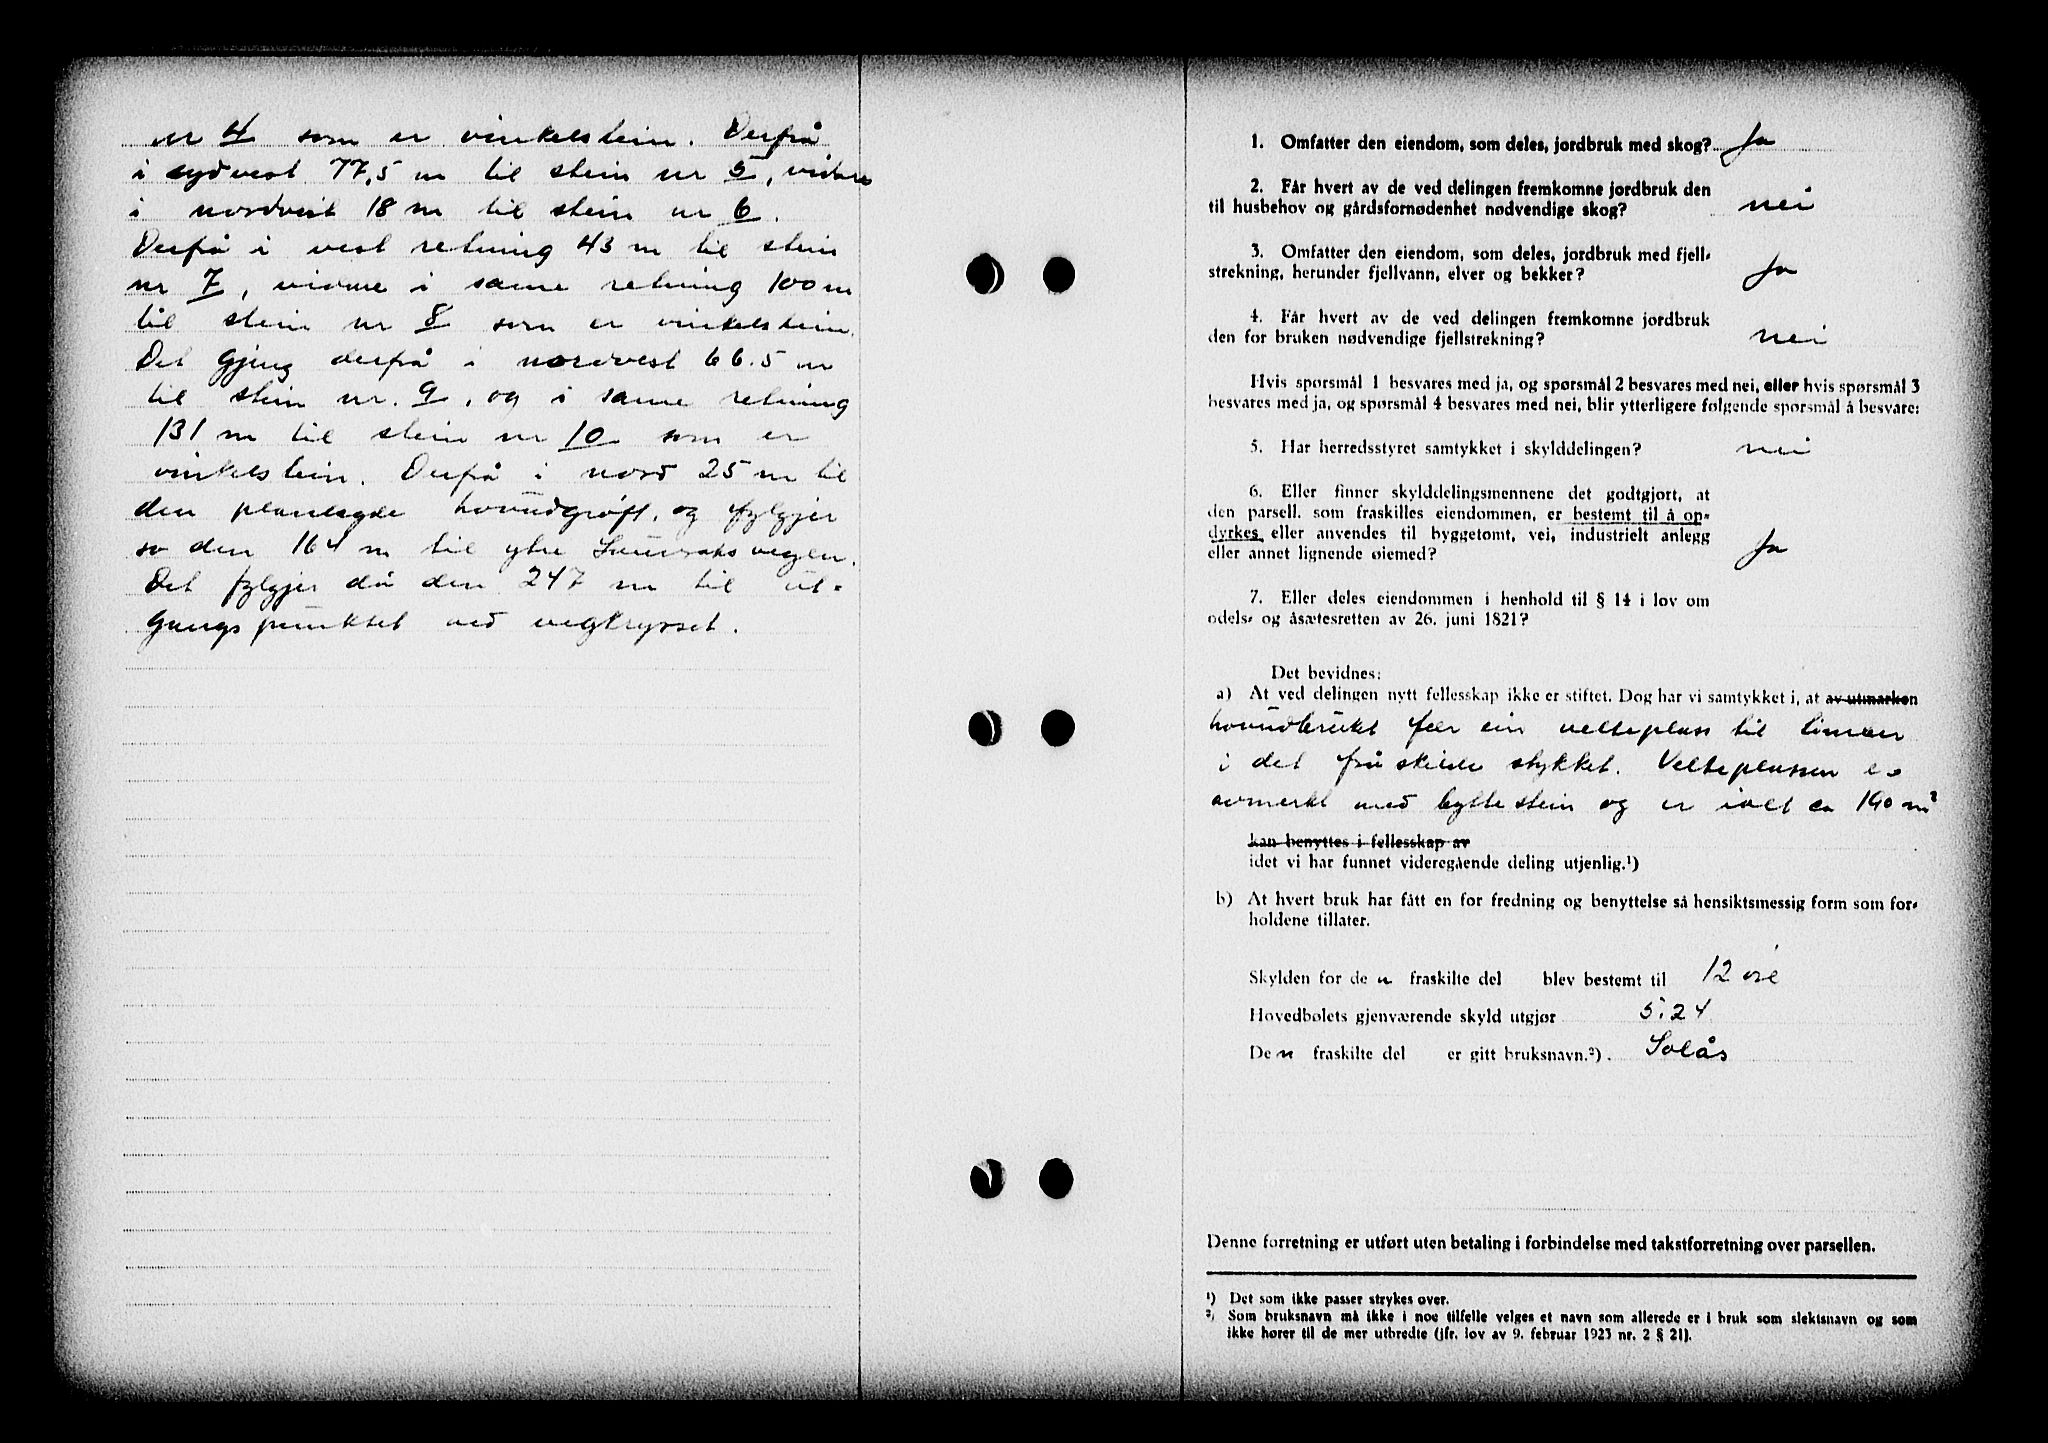 nr 4 som er vinkelstein. Derfrå
i sydvest 77,5 m til stein nr 5, vidare
i nordvest 18 m til stein nr 6.
Derfrå i vest retning 43 m til stein
nr 7, vidare i same retning 100 m
til stein nr 8 som er vinkelstein.
Det gjeng derfrå i nordvest 66.5 m
til stein nr. 9, og i same retning
131 m til stein nr 10 som er
vinkelstein. Derfrå i nord 25 m til
den planlagde hovudgrøft, og fylgjer
so den 164 m til ytre vegen.
Det fylgjer då den 247 m til ut-
gangspunktet ved vegkrysset.
1. Omfatter den eiendom, som deles, jordbruk med skog? Ja
2. Får hvert av de ved delingen fremkomne jordbruk den
til husbehov og gårdsfornødenhet nødvendige skog? nei
3. Omfatter den eiendom, som deles, jordbruk med fjell-
strekning, herunder fjellvann, elver og bekker? Ja
4. Får hvert av de ved delingen fremkomne jordbruk
den for bruken nødvendige fjellstrekning? nei
Hvis spørsmål 1 besvares med ja, og spørsmål 2 besvares med nei, eller hvis spørsmål 3
besvares med ja, og spørsmål 4 besvares med nei, blir ytterligere følgende spørsmål å besvare:
5. Har herredsstyret samtykket i skylddelingen? nei
6. Eller finner skylddelingsmennene det godtgjort, at
den parsell. som fraskilles eiendommen, er bestemt til å op-
dyrkes, eller anvendes til byggetomt, vei, industrielt anlegg
eller annet lignende øiemed? Ja
7. Eller deles eiendommen i henhold til § 14 i lov om
odels- og åsætesretten av 26. juni 1821?
Det bevidnes:
a) At ved delingen nytt fellesskap ikke er stiftet. Dog har vi samtykket i, at av utmarken
hovudbruket fær ein velteplass til timber
i det fråskilde stykket. Velteplassen er
avmerkt med byttestein og er ialt ca 190 m²
kan benyttes i fellesskap av
idet vi har funnet videregående deling utjenlig.¹)
b) At hvert bruk har fått en for fredning og benyttelse så hensiktsmessig form som for-
holdene tillater.
Skylden for de n fraskilte del blev bestemt til 12 øre
Hovedbølets gjenværende skyld utgjør 5.24
De n fraskilte del er gitt bruksnavn.²) . Solås
Denne forretning er utført uten betaling i forbindelse med takstforretning over parsellen.
¹) Det som ikke passer strykes over.
²) Som bruksnavn må ikke i noe tilfelle velges et navn som allerede er i bruk som slektsnavn og som
ikke hører til de mer utbredte (jfr. lov av 9. februar 1923 nr. 2 § 21).